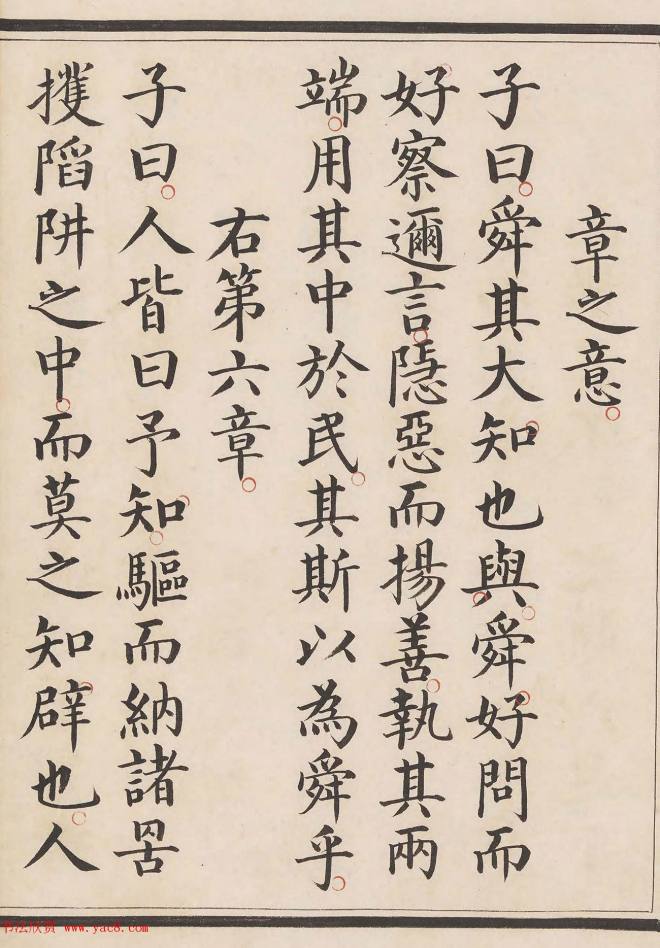 章之意
子曰舜其大知也與舜好問而
好察邇言隠惡而揚善執其兩
端用其中於民其斯以為舜乎
右第六章
子曰人皆曰予知驅而納諸罟
擭䧟阱之中而莫之知辟也人
书法欣赏 www.yac8.com